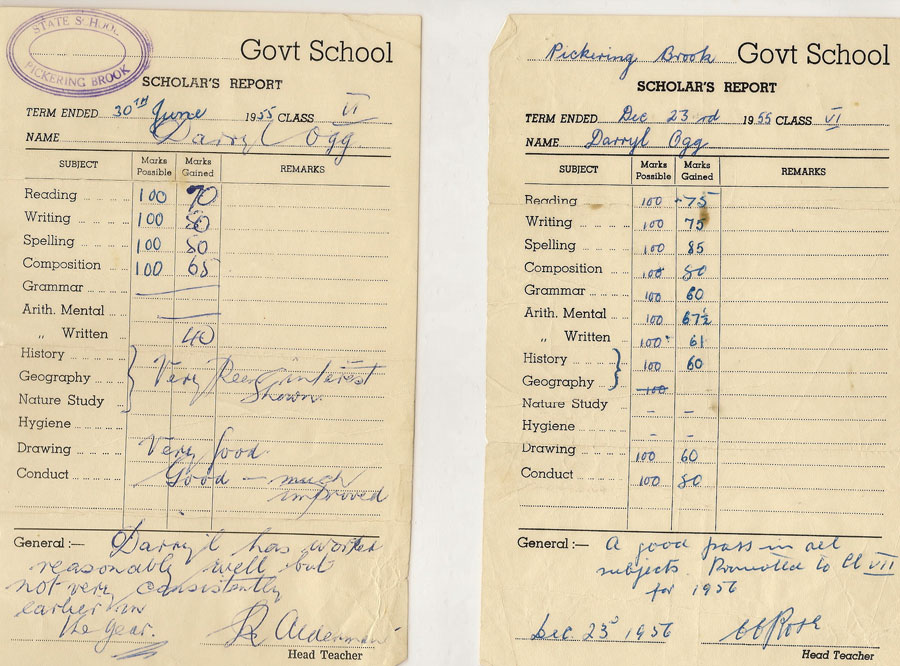 STATE SCHOOL
PICKERING BROOK
Govt School
SCHOLAR'S REPORT
TERM ENDED 30TH June 1955 CLASS VI
NAME Darryl Ogg
SUBJECT Marks Possible Marks Gained REMARKS
Reading 100 70
Writing 100 80
Spelling 100 80
Composition 100 65
Grammar
Arith. Mental
„ Written 40
History
Geography Very Keen interest
Nature Study shown.
Hygiene
Drawing Very Good
Conduct Good - much
improved
General :— Darryl has worked
reasonably well but
not very consistently
earlier in
the year.
R Alderman
Head Teacher
Pickering Brook Govt School
SCHOLAR'S REPORT
TERM ENDED Dec 23rd 1955 CLASS VI
NAME Darryl Ogg
SUBJECT Marks Possible Marks Gained REMARKS
Reading 100 75
Writing 100 75
Spelling 100 85
Composition 100 80
Grammar 100 60
Arith. Mental 100 67½
„ Written 100 61
History 100 60
Geography 100
Nature Study - -
Hygiene - -
Drawing 100 60
Conduct 100 80
General :— A good pass in all
subjects. Promoted to Cl VII
for 1956
Dec. 23d 1956
Head Teacher